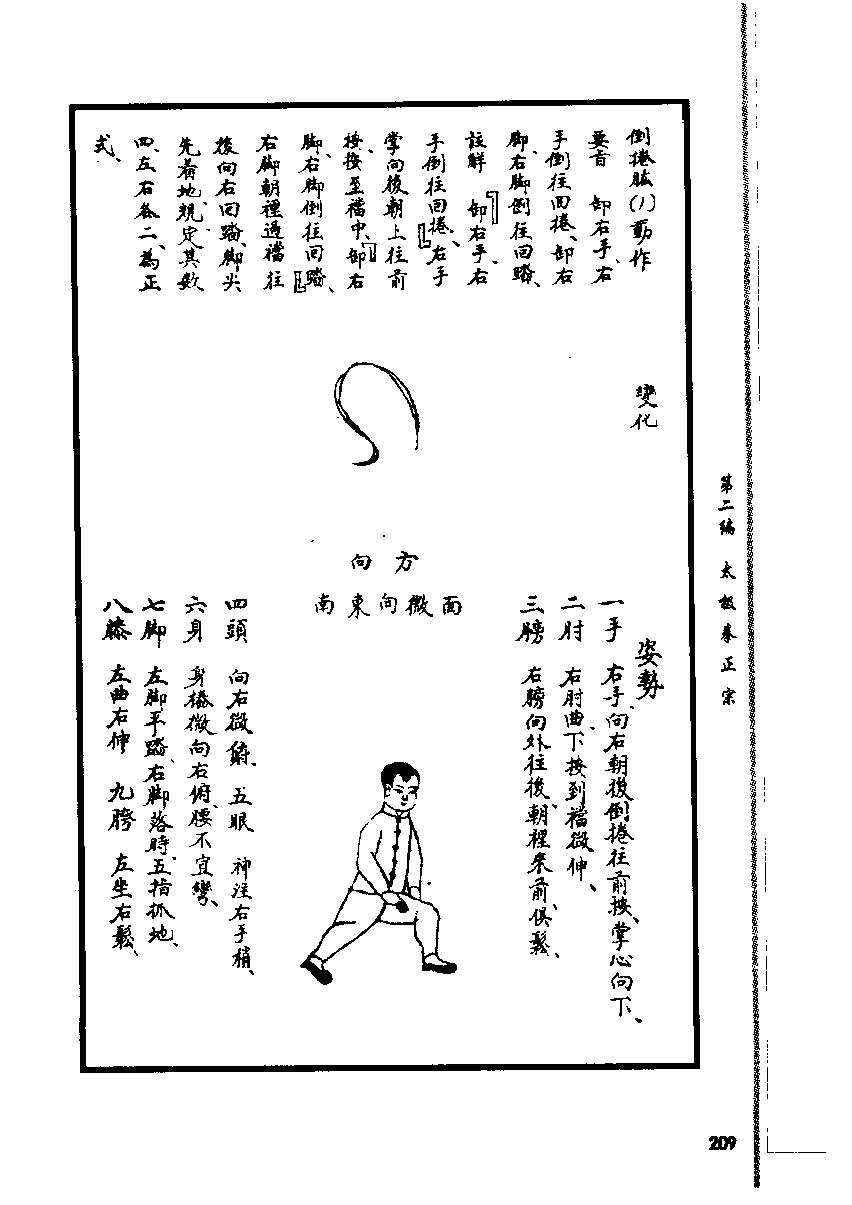 倒捲肱(1)動作
要旨　卸右手、右
手倒往回捲、卸右
脚、右脚倒往回踏、
註解　「卸右手、右
手倒往回捲」、右手
掌向後朝上往前
按、按至襠中、「卸右
脚、右脚倒往回踏」、
右脚朝裡過襠往
後向右回踏、脚尖
先着地、規定其數
四、左右各二、為正
式、
變化
方向
面微向東南
姿勢
一手　右手、向右朝後倒捲往前按、掌心向下、
二肘　右肘曲、下按到襠微伸、
三膀　右膀向外往後、朝裡來前、俱鬆、
四頭　向右微俯、五眼　神注右手稍、
六身　身樁微向右俯、腰不宜彎、
七脚　左脚平踏、右脚落時、五指抓地、
八膝　左曲右伸　九胯　左坐右鬆、
第二編　太極拳正宗
209